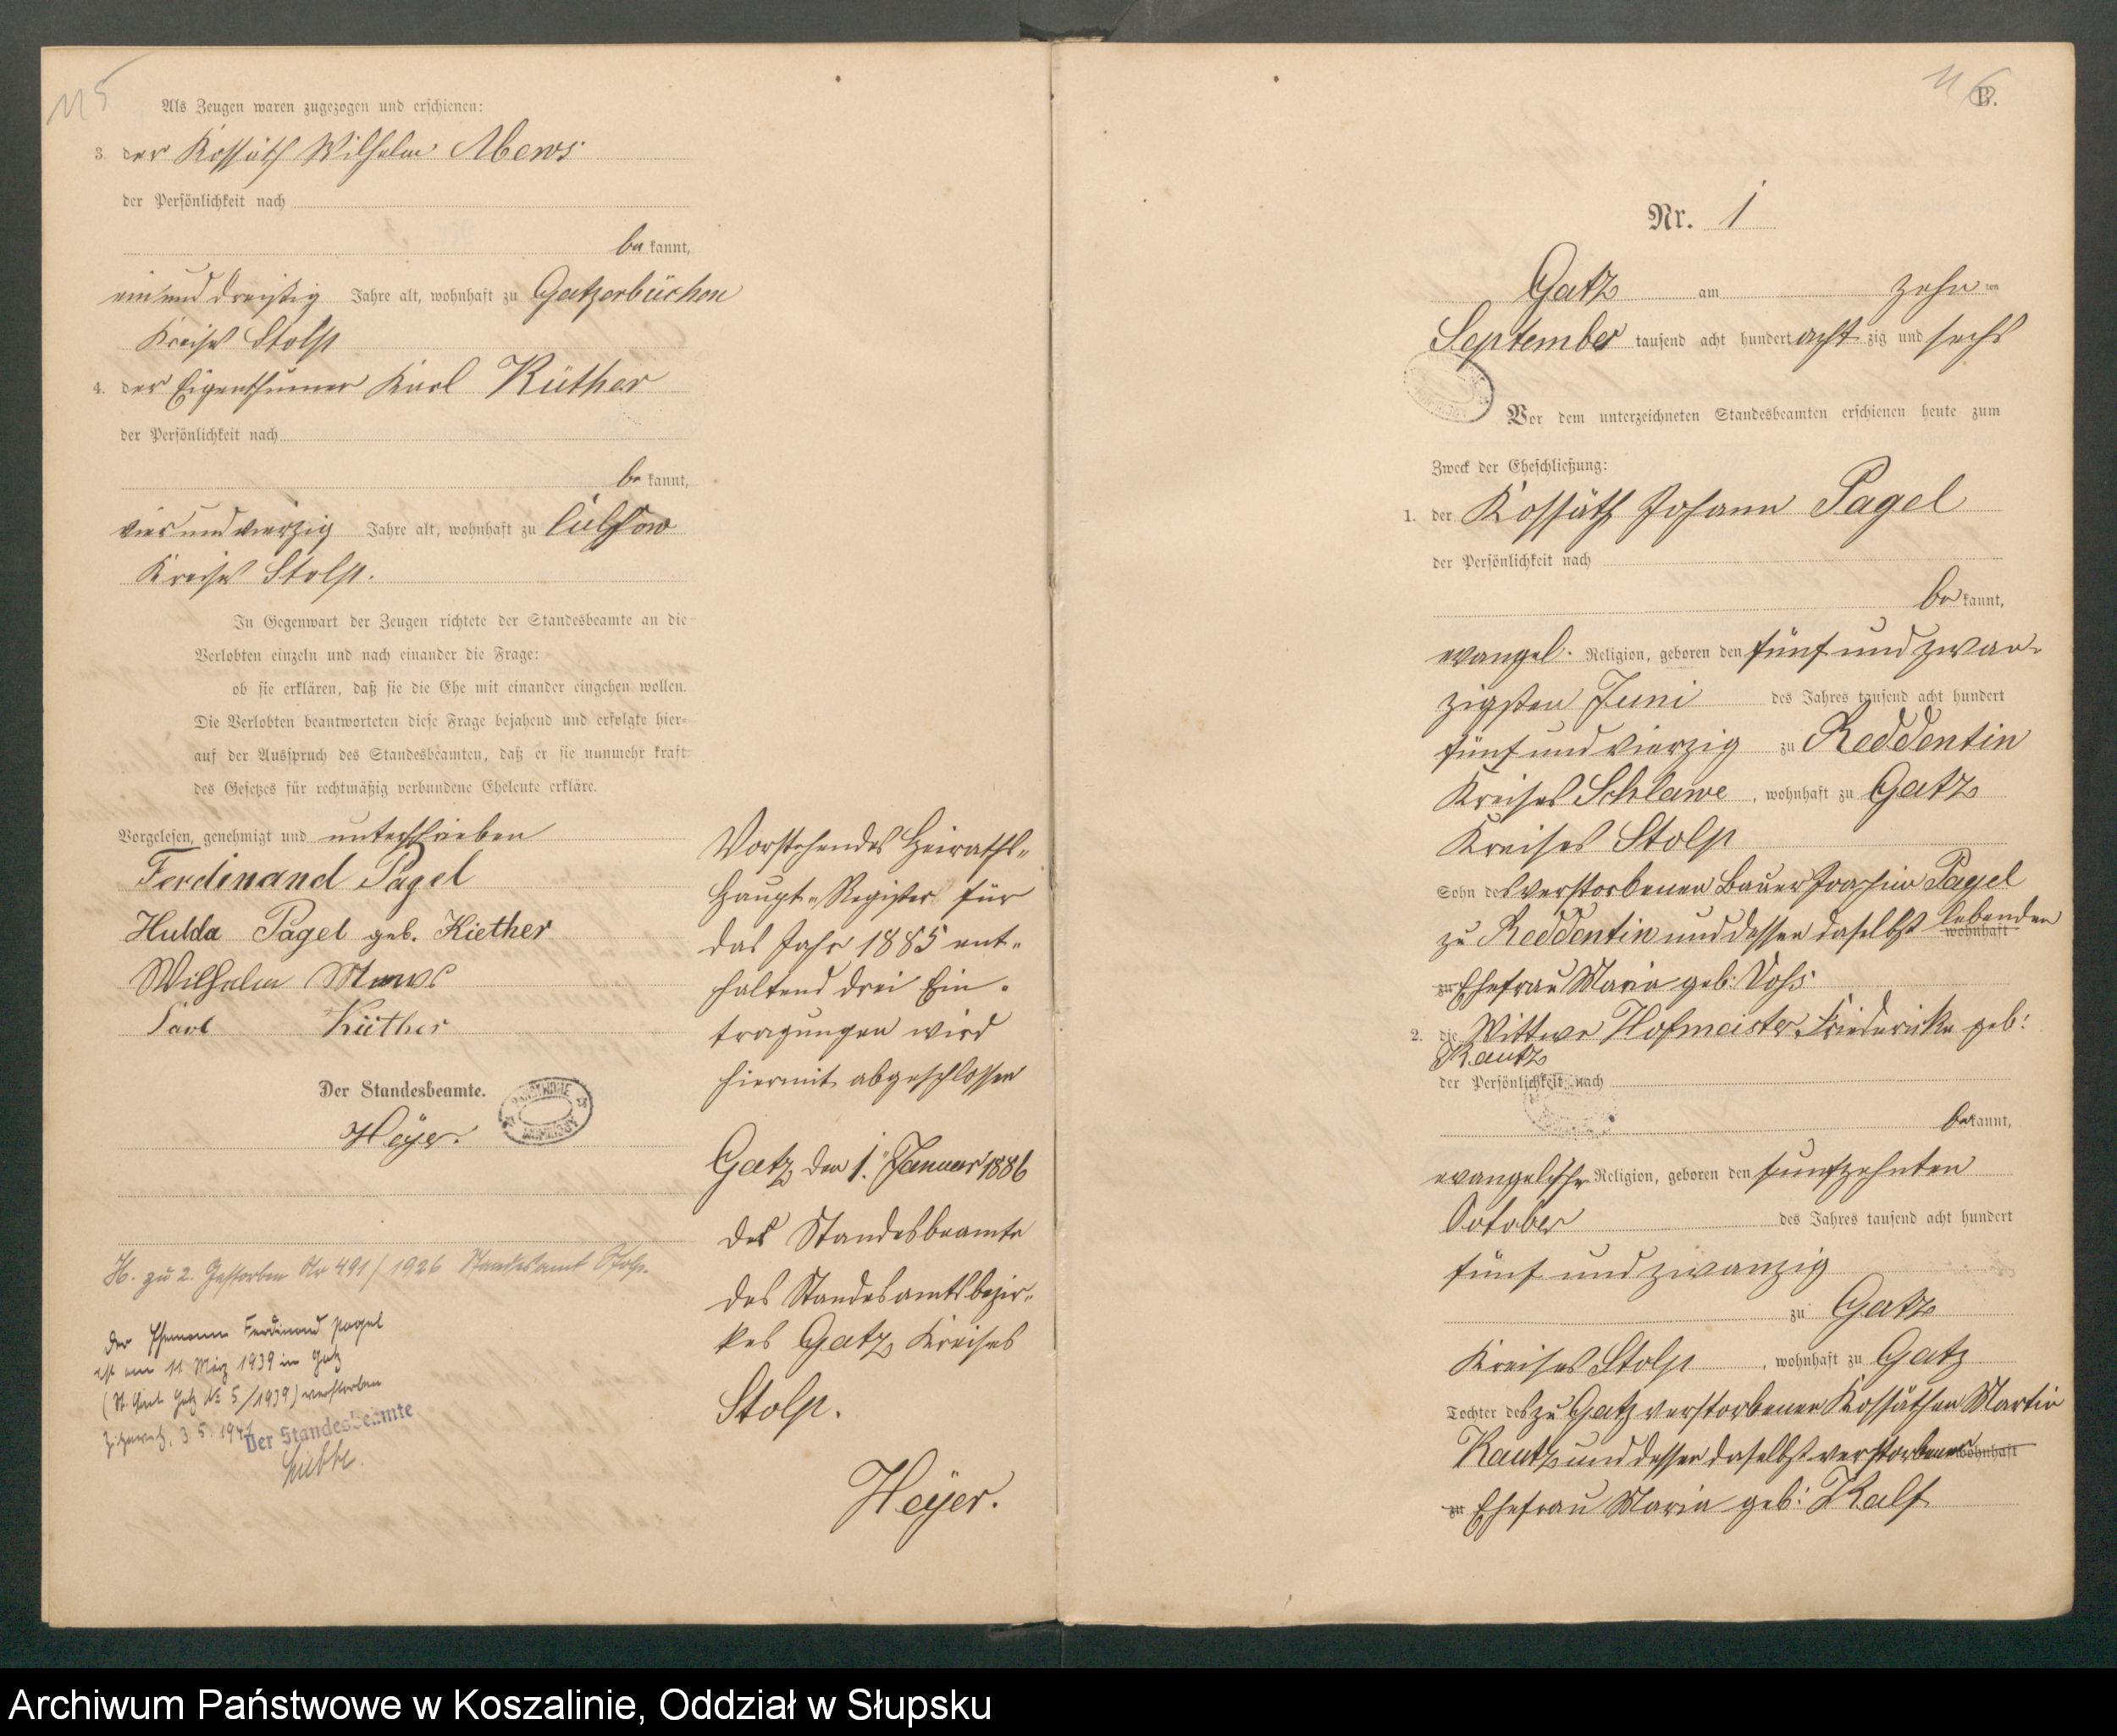 115
Als Zeugen waren zugezogen und erschienen:
3. der Kossäth Wilhelm Mews
der Persönlichkeit nach
be kannt,
ein und dreißig Jahre alt, wohnhaft zu Gatzerbüchen
Kreises Stolp
4. der Eigenthümer Karl Küther
der Persönlichkeit nach
be kannt,
vier und vierzig Jahre alt, wohnhaft zu Lübzow
Kreises Stolp.
In Gegenwart der Zeugen richtete der Standesbeamte an die
Verlobten einzeln und nach einander die Frage:
ob sie erklären, daß sie die Ehe mit einander eingehen wollen.
Die Verlobten beantworteten diese Frage bejahend und erfolgte hier-
auf der Ausspruch des Standesbeamten, daß er sie nunmehr kraft
des Gesetzes für rechtmäßig verbundene Eheleute erkläre.
Vorgelesen, genehmigt und unterschrieben
Ferdinand Pagel
Hulda Pagel geb. Kiether
Wilhelm Mews
Carl Küther
Der Standesbeamte.
Heyer.
H. zu 2. Gestorben Nr 491/1926 Standesamt Stolp.
Der Ehemann Ferdinand Pagel
ist am 11. März 1939 in Gatz
(St. Amt Gatz Nr 5/1939) verstorben
Der Standesbeamte
Vorstehendes Heiraths-
Haupt-Register für
das Jahr 1885 ent-
haltend drei Ein-
tragungen wird
hiermit abgeschlossen
Gatz den 1. Januar 1886
Der Standesbeamte
des Standesamtsbezir-
kes Gatz Kreises
Stolp.
Heyer.
116
B.
Nr. 1
Gatz am zehn ten
September tausend acht hundert acht zig und sechs
Vor dem unterzeichneten Standesbeamten erschienen heute zum
Zweck der Eheschließung:
1. der Kossäth Johann Pagel
der Persönlichkeit nach
be kannt,
evangel. Religion, geboren den fünf und zwan-
zigsten Juni des Jahres tausend acht hundert
fünf und vierzig zu Reddentin
Kreises Schlawe, wohnhaft zu Gatz
Kreises Stolp
Sohn des verstorbenen Bauer Joachim Pagel
zu Reddentin und dessen daselbst lebenden wohnhaft
zu Ehefrau Maria geb: Voß
2. die Wittwe Hofmeister Friederike geb:
Kautz
der Persönlichkeit nach
be kannt,
evangelischer Religion, geboren den funfzehnten
October des Jahres tausend acht hundert
fünf und zwanzig
zu Gatz
Kreises Stolp, wohnhaft zu Gatz
Tochter des zu Gatz verstorbenen Kossäthen Martin
Kautz und dessen daselbst verstorbener wohnhaft
zu Ehefrau Maria geb: Kalf
Archiwum Państwowe w Koszalinie, Oddział w Słupsku